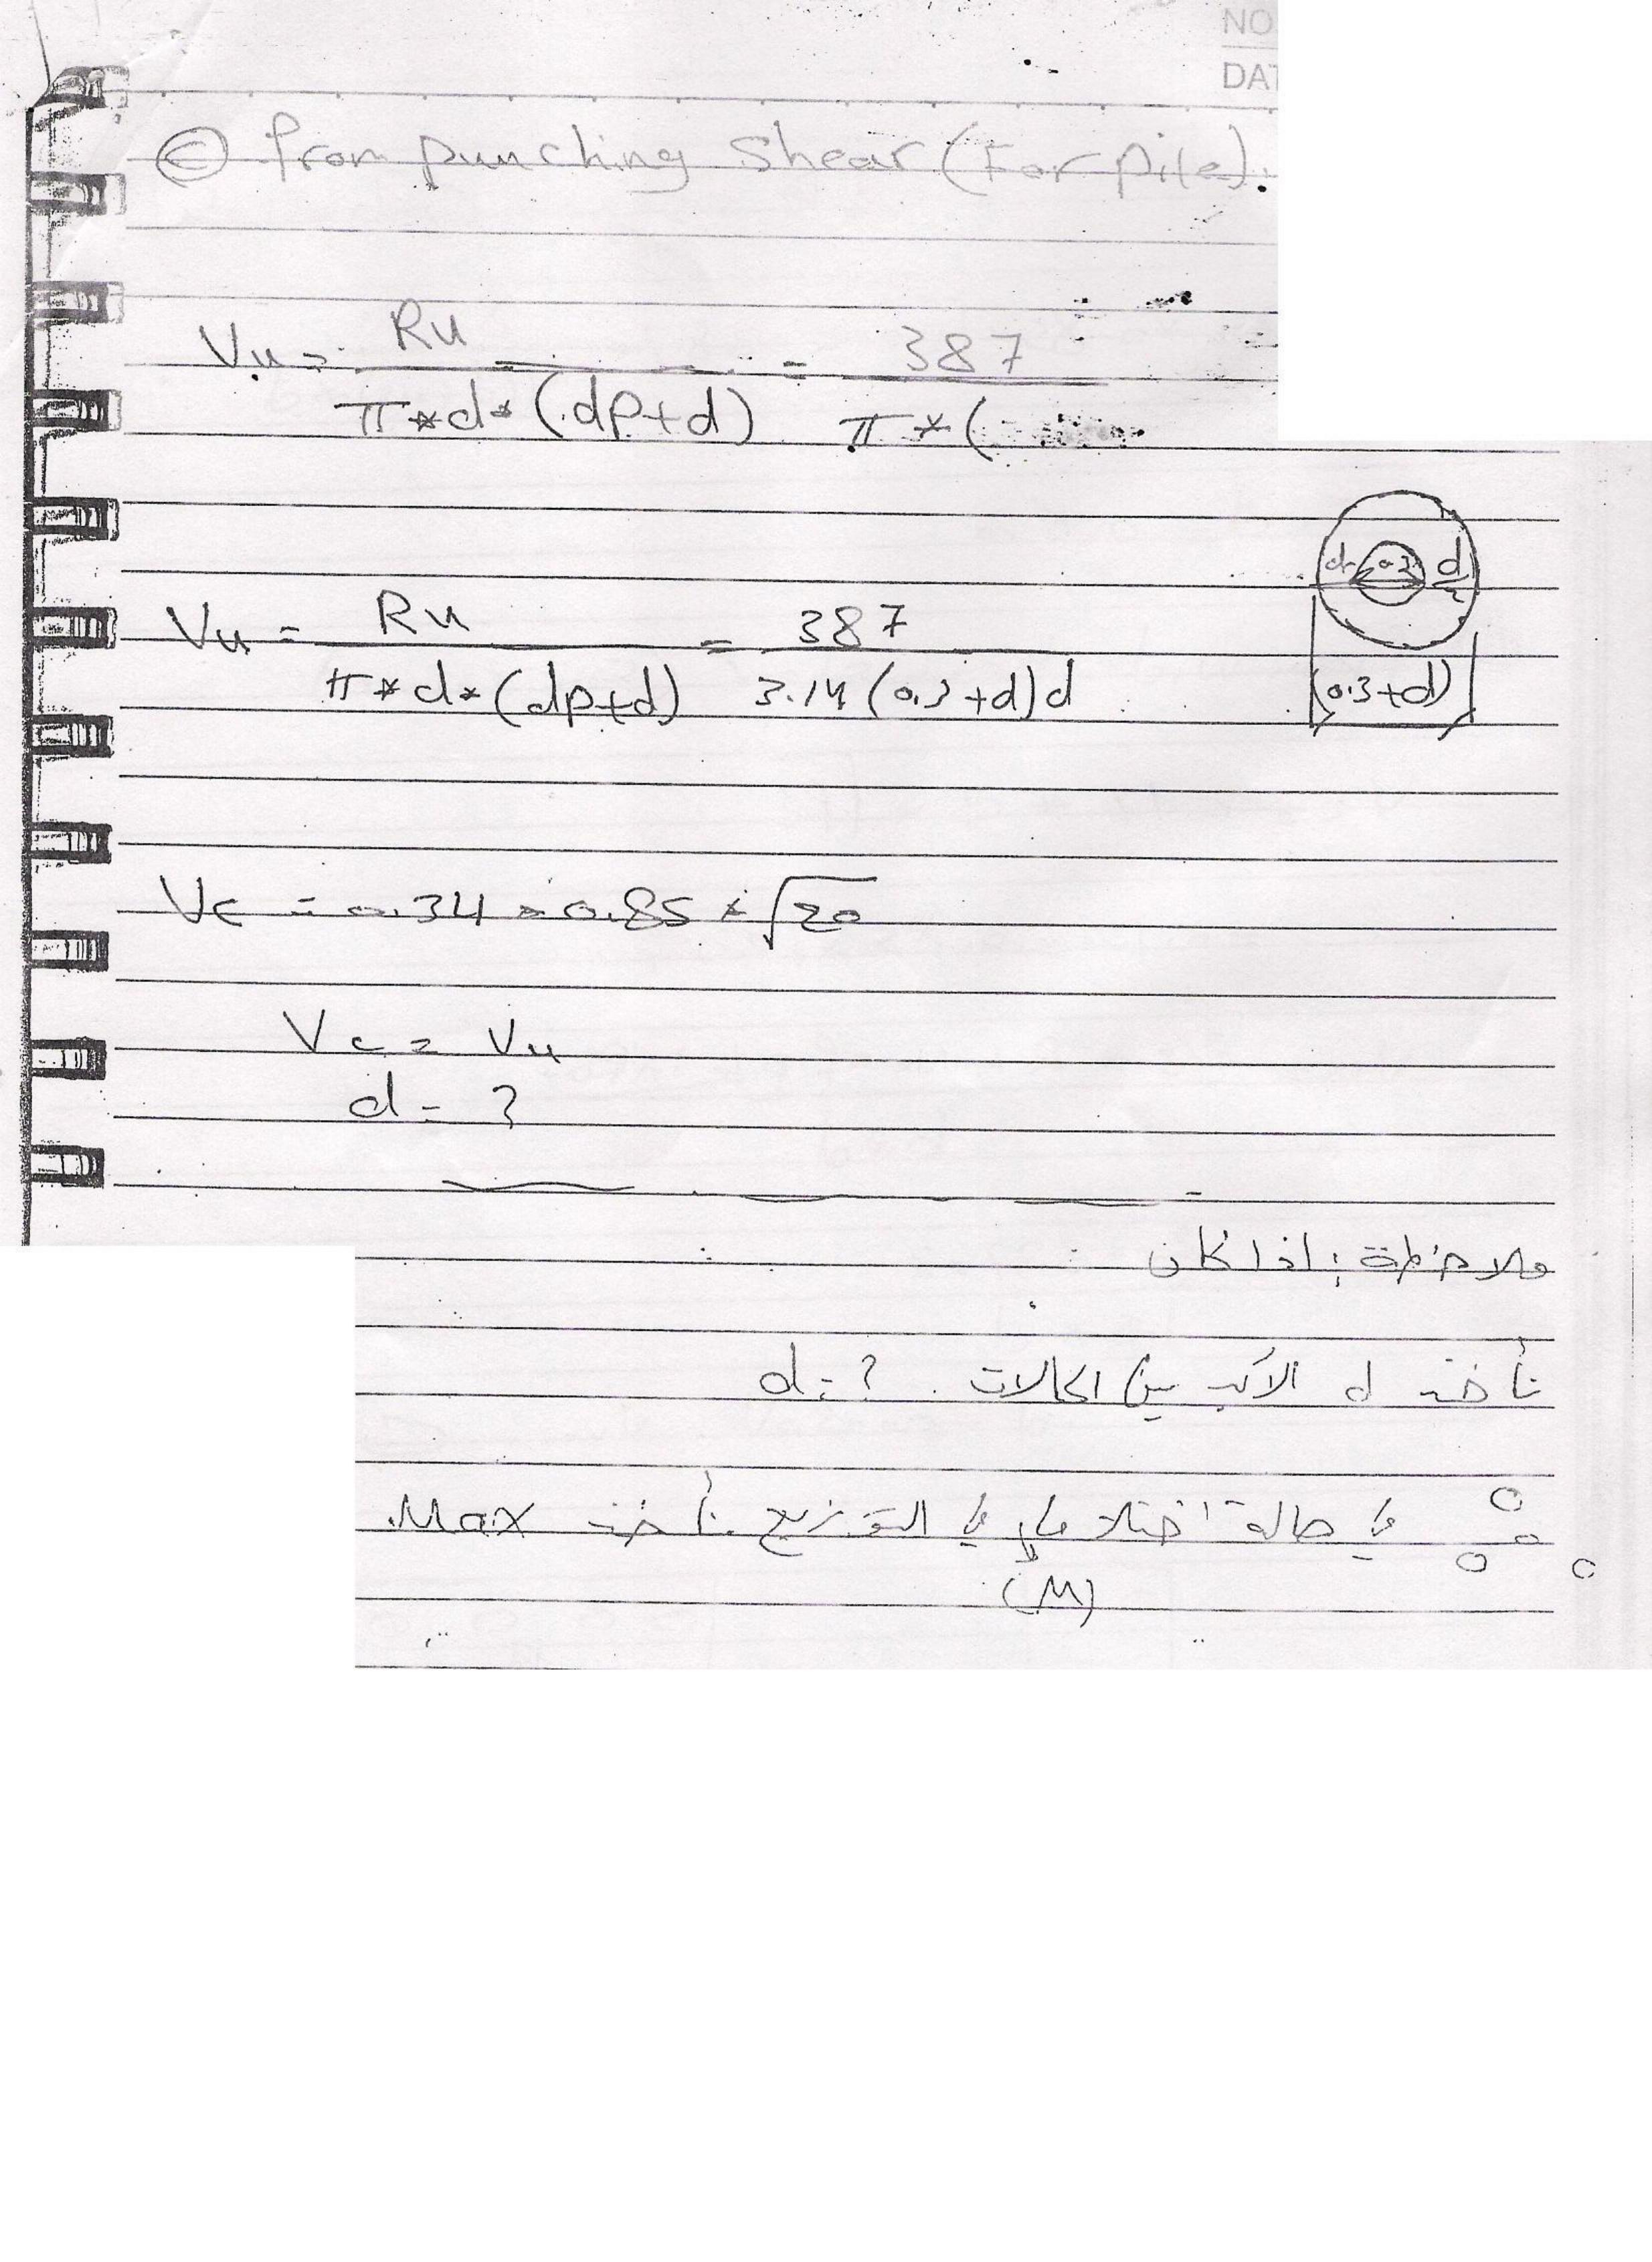 NO
DAT
© from punching Shear (For pile).
Vu = Ru / π*d*(dp+d) = 387 / π*(
Vu = Ru / π*d*(dp+d) = 387 / 3.14(0.3+d)d
d 0.3 d/2
(0.3+d)
Vc = 0.34 * 0.85 * √20
Vc = Vu
d = ?
ملاحظة: اذا كان
نأخذ d الأكبر بين الحالات. d = ?
في حالة اختلاف في التوزيع نأخذ Max.
(M)